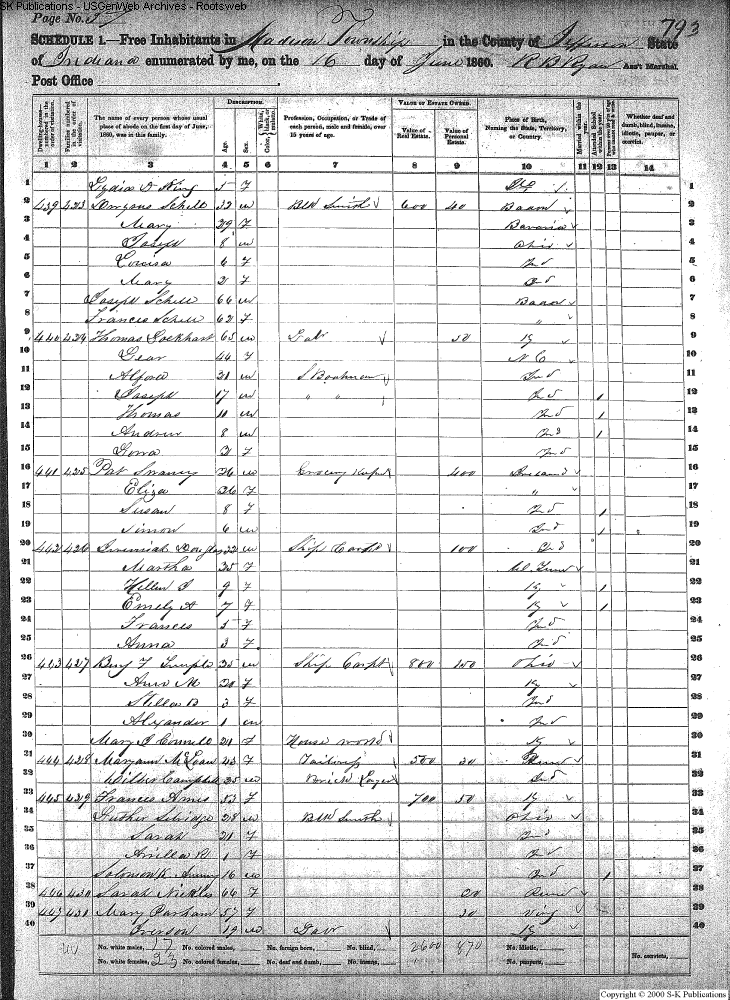 SK Publications - USGenWeb Archives - Rootsweb
Page No. 793
SCHEDULE 1.—Free Inhabitants in Madison Township in the County of Jefferson State
of Indiana enumerated by me, on the 16 day of June 1860. R B Ryan Ass't Marshal.
Post Office
DESCRIPTION. VALUE OF ESTATE OWNED.
Dwelling-houses—numbered in the order of visitation. Families numbered in the order of visitation. The name of every person whose usual place of abode on the first day of June, 1860, was in this family. Age. Sex. Color, White, black, or mulatto. Profession, Occupation, or Trade of each person, male and female, over 15 years of age. Value of Real Estate. Value of Personal Estate. Place of Birth, Naming the State, Territory, or Country. Married within the year. Attended School within the year. Whether deaf and dumb, blind, insane, idiotic, pauper, or convict.
1 2 3 4 5 6 7 8 9 10 11 12 13 14
1 Lydia King 5 F 1
2 439 423 Schill 32 m Blk Smith 600 40 Baden 2
3 Mary 29 F Bavaria 3
4 Joseph 8 m Ohio 4
5 Louisa 6 F Ind 5
6 Mary 2 F Ind 6
7 Joseph Schill 66 m Baden 7
8 Francis Schill 62 F " 8
9 440 424 Thomas Lockhart 65 m Labr 50 Ky 9
10 44 F N C 10
11 Alford 21 m S Boatman Ind 11
12 Joseph 17 m " " Ind 1 12
13 Thomas 11 m Ind 1 13
14 Andrew 8 m Ind 1 14
15 2 F Ind 15
16 441 425 Pat Swaney 36 m Grocery Keeper 400 Ireland 16
17 Eliza 36 F " 17
18 Susan 8 F Ind 1 18
19 Simon 6 m Ind 1 19
20 442 426 Jeremiah Douglas 32 m Ship Carpt 100 Ind 20
21 Martha 35 F 21
22 Hellen J 9 F Ky 1 22
23 Emely A 7 F Ky 1 23
24 Frances 5 F Ind 24
25 Anna 3 F Ind 25
26 443 427 Benj F Temple 35 m Ship Carpt 800 100 Ohio 26
27 Ann M 30 F Ky 27
28 Stella B 3 F Ind 28
29 Alyander 1 m Ind 29
30 Mary J Connell 21 F House work Ky 30
31 444 428 Maryann McLean 43 F Tailress 500 30 31
32 Wilber Campbell 25 m Brick Layer Ind 32
33 445 429 Frances Amis 53 F 700 50 Ky 33
34 Luther Selridge 28 m Blk Smith Ohio 34
35 Sarah 21 F Ind 35
36 1 F Ind 36
37 16 m Ind 1 37
38 446 430 Sarah Nickles 66 F Penn 38
39 447 431 Mary Parham 57 F 20 Virg 39
40 Overson 19 m Labr Ky 40
No. white males, 17 No. colored males, No. foreign born, No. blind, 2600 870 No. idiotic, No. convicts,
No. white females, 23 No. colored females, No. deaf and dumb, No. insane, No. paupers,
Copyright © 2000 S-K Publications